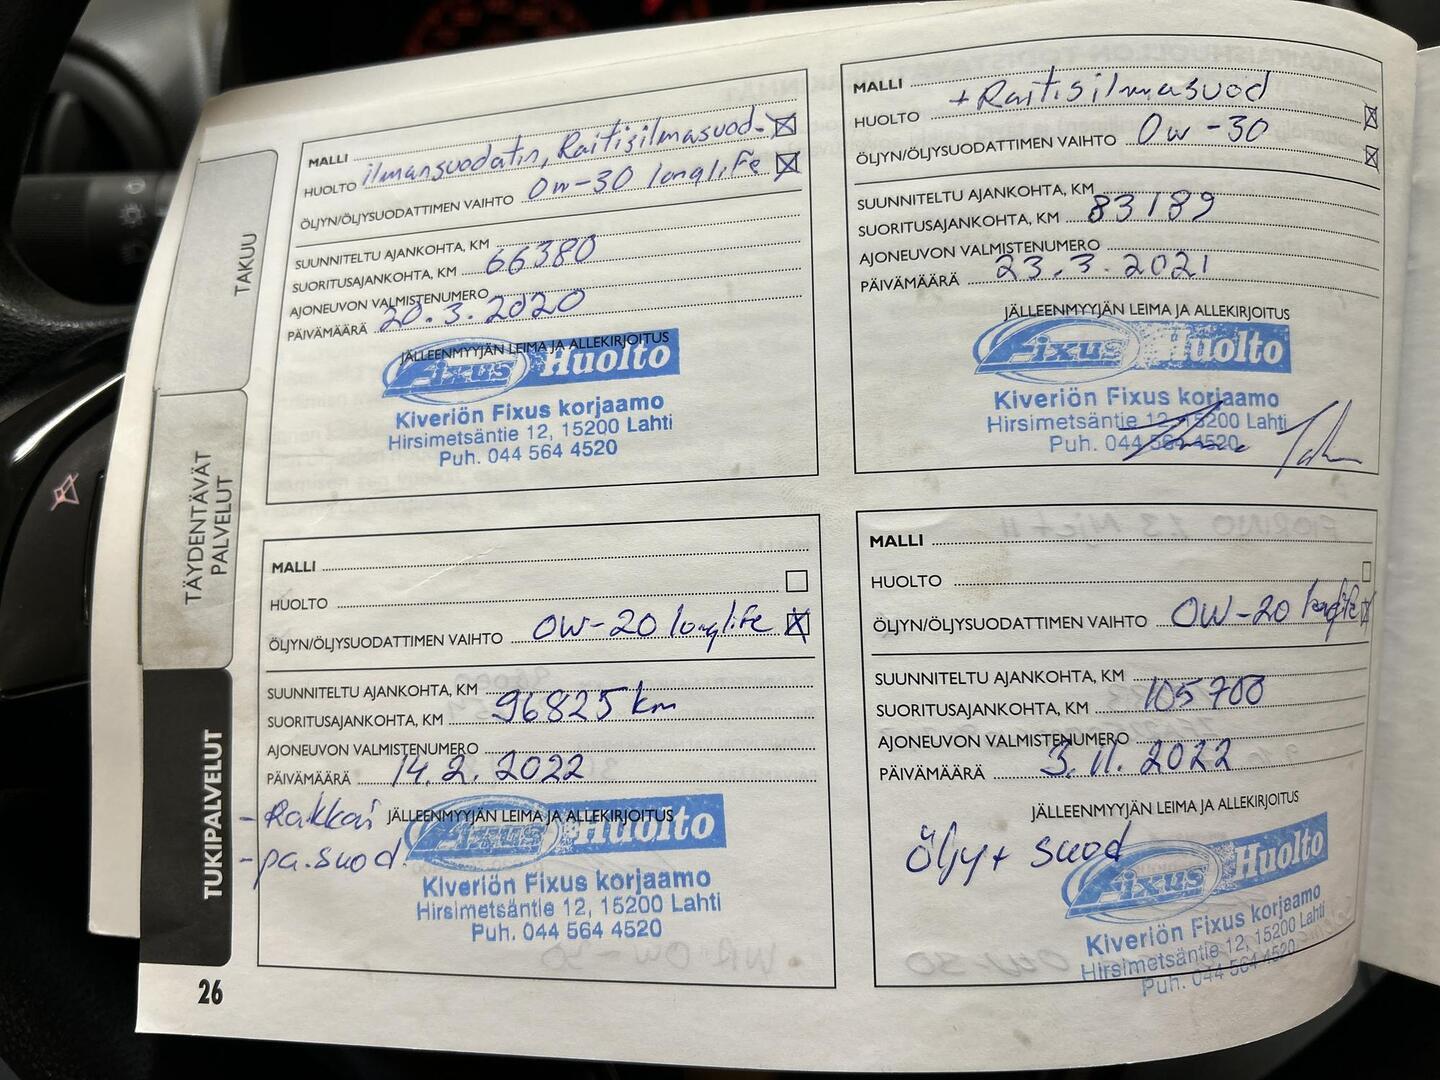 TAKUU
TÄYDENTÄVÄT
PALVELUT
TUKIPALVELUT
26
MALLI
HUOLTO ilmansuodatin, Raitisilmasuod.
ÖLJYN/ÖLJYSUODATTIMEN VAIHTO 0w-30 longlife
SUUNNITELTU AJANKOHTA, KM
SUORITUSAJANKOHTA, KM 66380
AJONEUVON VALMISTENUMERO
PÄIVÄMÄÄRÄ 20.3.2020
JÄLLEENMYYJÄN LEIMA JA ALLEKIRJOITUS
Fixus Huolto
Kiveriön Fixus korjaamo
Hirsimetsäntie 12, 15200 Lahti
Puh. 044 564 4520
MALLI
HUOLTO + Raitisilmasuod
ÖLJYN/ÖLJYSUODATTIMEN VAIHTO 0w-30
SUUNNITELTU AJANKOHTA, KM
SUORITUSAJANKOHTA, KM 83189
AJONEUVON VALMISTENUMERO
PÄIVÄMÄÄRÄ 23.3.2021
JÄLLEENMYYJÄN LEIMA JA ALLEKIRJOITUS
Fixus Huolto
Kiveriön Fixus korjaamo
Hirsimetsäntie 12, 15200 Lahti
Puh. 044 564 4520
MALLI
HUOLTO
ÖLJYN/ÖLJYSUODATTIMEN VAIHTO 0W-20 longlife
SUUNNITELTU AJANKOHTA, KM
SUORITUSAJANKOHTA, KM 96825 km
AJONEUVON VALMISTENUMERO
PÄIVÄMÄÄRÄ 14.2.2022
JÄLLEENMYYJÄN LEIMA JA ALLEKIRJOITUS
- pa.suod.
Fixus Huolto
Kiveriön Fixus korjaamo
Hirsimetsäntie 12, 15200 Lahti
Puh. 044 564 4520
MALLI
HUOLTO
ÖLJYN/ÖLJYSUODATTIMEN VAIHTO 0W-20 longlife
SUUNNITELTU AJANKOHTA, KM
SUORITUSAJANKOHTA, KM 105700
AJONEUVON VALMISTENUMERO
PÄIVÄMÄÄRÄ 3.11.2022
JÄLLEENMYYJÄN LEIMA JA ALLEKIRJOITUS
Öljy + suod
Fixus Huolto
Kiveriön Fixus korjaamo
Hirsimetsäntie 12, 15200 Lahti
Puh. 044 564 4520